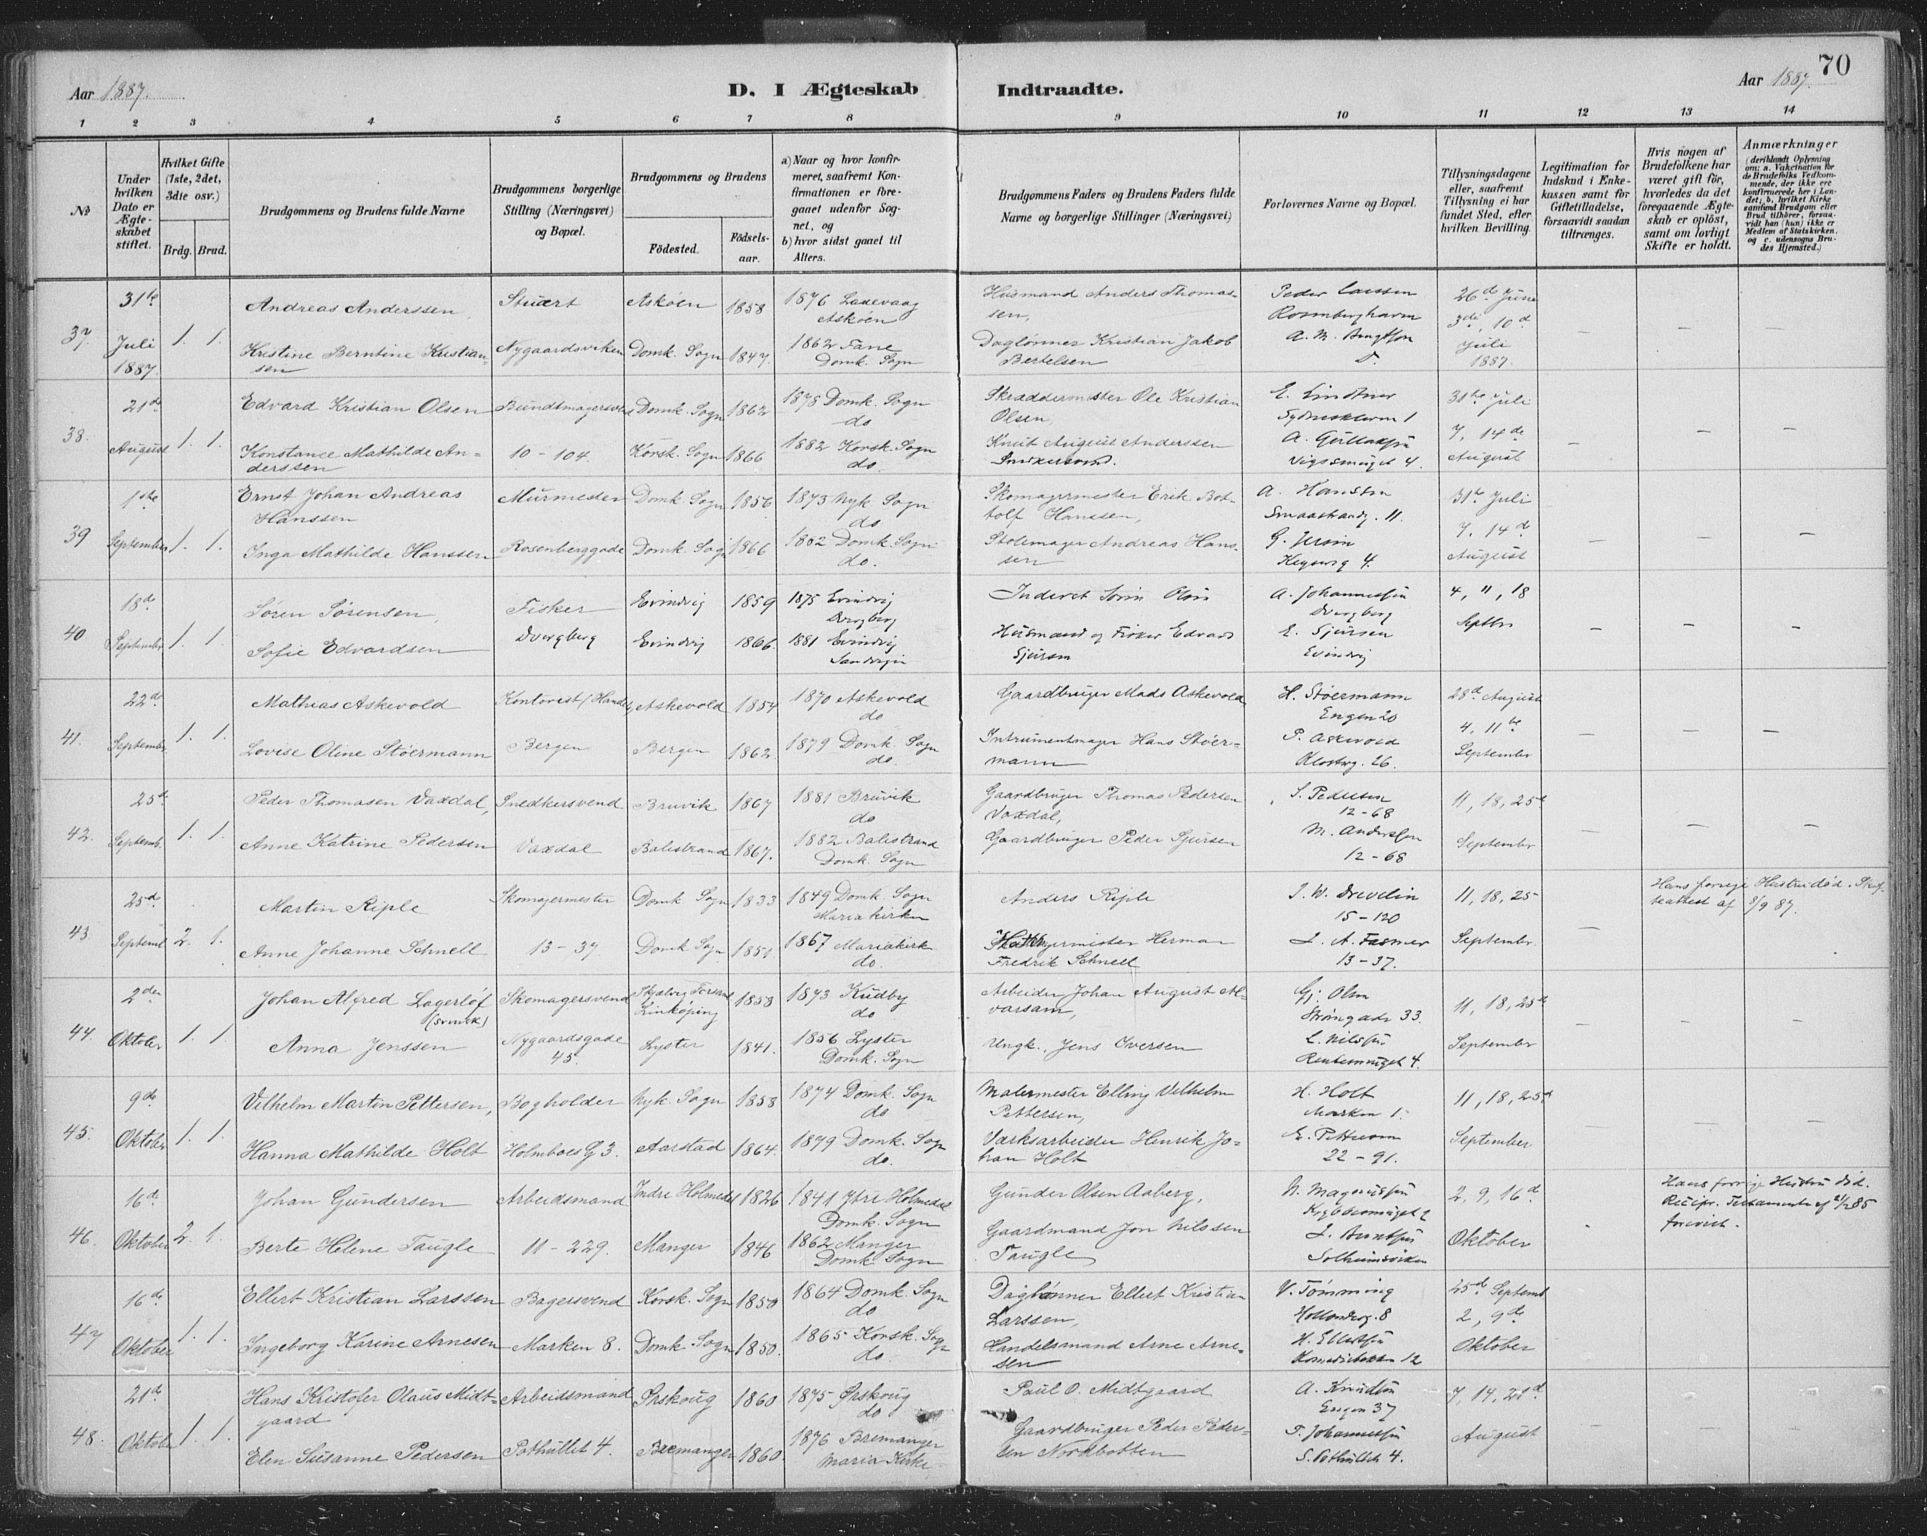 Aar 1887.
D. I Ægteskab Indtraadte.
Aar 1887. 70
1 2 3 4 5 6 7 8 9 10 11 12 13 14
№
Under hvilken Dato er Ægteskabet stiftet.
Hvilket Gifte (1ste, 2det, 3die osv.)
Brdg. Brud.
Brudgommens og Brudens fulde Navne
Brudgommens borgerlige Stilling (Næringsvei) og Bopæl.
Brudgommens og Brudens
Födested. Födsels-aar.
a) Naar og hvor konfirmeret, saafremt Konfirmationen er foregaaet udenfor Sognet, og
b) hvor sidst gaaet til Alters.
Brudgommens Faders og Brudens Faders fulde Navne og borgerlige Stillinger (Næringsvei)
Forlovernes Navne og Bopæl.
Tillysningsdagene eller, saafremt Tillysning ei har fundet Sted, efter hvilken Bevilling.
Legitimation for Indskud i Enkekassen samt för Giftetilladelse, forsaavidt saadan tiltrænges.
Hvis nogen af Brudefolkene har været gift för, hvorledes da det foregaaende Ægteskab er oplöst, samt om lovligt Skifte er holdt.
Anmærkninger
(deriblandt Oplysning om: a. Vakcination for de Brudefolks Vedkommende, der ikke ere konfirmerede her i Landet; b. hvilket Kirkesamfund Brudgom eller Brud tilhörer, forsaavidt han (hun) ikke er Medlem af Statskirken, og c. udensogns Brudes Hjemsted.)
31te Andreas Anderssen, Stuert Askøen 1858 1876 Laxevaag Husmand Anders Thomas- Peder Larssen 26de Juni
Askøen sen, Rosenberghavn 3die, 10de
37. Juli 1. 1. Kristine Berntine Kristian- Nygaardsviken Domk. Sogn 1847 1862 Fane Daglønner Kristian Jakob Juli
1887. sen Domk. Sogn Bertelsen 1887.
21de Edvard Kristian Olsen Bundtmagersvend Domk. Sogn 1862 1878 Domk. Sogn Skræddermester Ole Kristian E. Lindtner 31te Juli
do Olsen 1
38. August 1. 1. Konstance Mathilde An- 10-104. Korsk. Sogn 1866 1882 Korsk. Sogn Knut August Anderssen A. 7, 14de
derssen do. 4. August
1ste Ernst Johan Andreas Murmester Domk. Sogn 1856 1873 Nyk. Sogn Skomagermester Erik Bot- A. Hansen 31te Juli
Hanssen do tolf Hanssen, Smaastrandg. 11.
39 September 1. 1. Inga Mathilde Hanssen Rosenberggade Domk. Sogn 1866 1882 Domk. Sogn Stolemager Andreas Hans- G. 7, 14de
do. sen 4. August
18de Søren Sørensen, Fisker Evindvig 1859 1875 Evindvig Inderst A. Johannessen 4, 11, 18
Dvergberg Dvergberg
40 September 1. 1. Sofie Edvardsen Dvergberg Evindvig 1866. 1881 Evindvig Husmand og Fisker Edvard E. Sjursen Septbr
Sjursen Evindvig
22de Mathias Askevold Kontorist Askevold 1854 1870 Askevold Gaardbruger Mads Askevold H. Støermann 28de August
do Engen 20
41. September 1. 1. Lovise Oline Støermann Bergen Bergen 1862. 1879 Domk. Sogn Intrumentmager Hans Støer- P. Askevold 4, 11te
do. mann Klosterg. 26. September
25de Peder Thomasen Vaxdal, Snedkersvend Bruvik 1867 1881 Bruvik Gaardbruger Thomas Pedersen S. Pedersen 11, 18, 25de
do Vaxdal, 12-68
42. Septemb. 1. 1. Anne Katrine Pedersen Vaxdal Balestrand 1867. 1882 Balestrand Gaardbruger Peder Sjursen M. Andersen September
Domk. Sogn 12-68
25de Martin Riple Skomagermester Domk. Sogn 1833 1849 Domk. Sogn Anders Riple J. W. Drevelin 11, 18, 25 Hans forrige Hustru død. Skif-
Mariakirken 15-120 teattest af 8/9 87.
43 Septemb 2. 1. Anne Johanne Schnell 13-37 Domk. Sogn 1851 1867 Mariakirk Herman J. A. Fasmer September
do. Fredrik Schnell 13-37.
2den Johan Alfred Lagerlöf Skomagersvend 1858 1873 Kudby Arbeider Johan August Al- Gj. Olsen 11, 18, 25de
(Svensk) Linköping do varsam, Strømgade 33.
44. Oktober 1. 1. Anna Jenssen Nygaardsgade Lyster 1841. 1856 Lyster Ungk. Jens Iversen L. Nilssen September
45. Domk. Sogn 4.
9de Vilhelm Martin Pettersen, Bogholder Nyk. Sogn 1858 1874 Domk. Sogn Malermester Elling Vilhelm H. Holt 11, 18, 25de
do Pettersen, Marken 1.
45. Oktober 1. 1. Hanna Mathilde Holt Holmboes G 3. Aarstad 1864. 1879 Domk. Sogn Værksarbeider Henrik Jo- E. Pettersen September
do. han Holt 22-91.
16de Johan Gundersen Arbeidsmand Indre Holmedal 1826 1841 Ytre Holmedal Gunder Olsen Aaberg, N. Magnussen 2, 9, 16de Hans forrige Hustru død.
Domk. Sogn Recipr. Testamente af 21/2 85
46. Oktober 2. 1. Berte Helene Taugle 11-229. Manger 1846 1862 Manger Gaardmand Jon Nilssen J. Berntsen Oktober forevist.
Domk. Sogn Taugle Solheimsviken
16de Ellert Kristian Larssen Bagersvend Korsk. Sogn 1850 1864 Domk. Sogn Daglønner Ellert Kristian V. Tømming 25de Septemb
do Larssen, Hollænderg. 8 2, 9de
47 Oktober 1. 1. Ingeborg Karine Arnesen Marken 8. Domk. Sogn 1850. 1865 Korsk. Sogn Handelsmand Arne Arne- H. Ellertsen Oktober
do sen 12
21de Hans Kristofer Olaus Midt- Arbeidsmand Ørskoug 1860 1875 Ørskoug Paul O. Midtgaard A. Knudsen 7, 14, 21de
gaard do Engen 37
48. Oktober 1. 1. Elen Susanne Pedersen Pothullet 4. Bremanger 1860. 1876 Bremanger Gaardbruger Peder Peder- T. Johannessen August
Maria Kirke sen Nordbotten S. Pothullet 4.